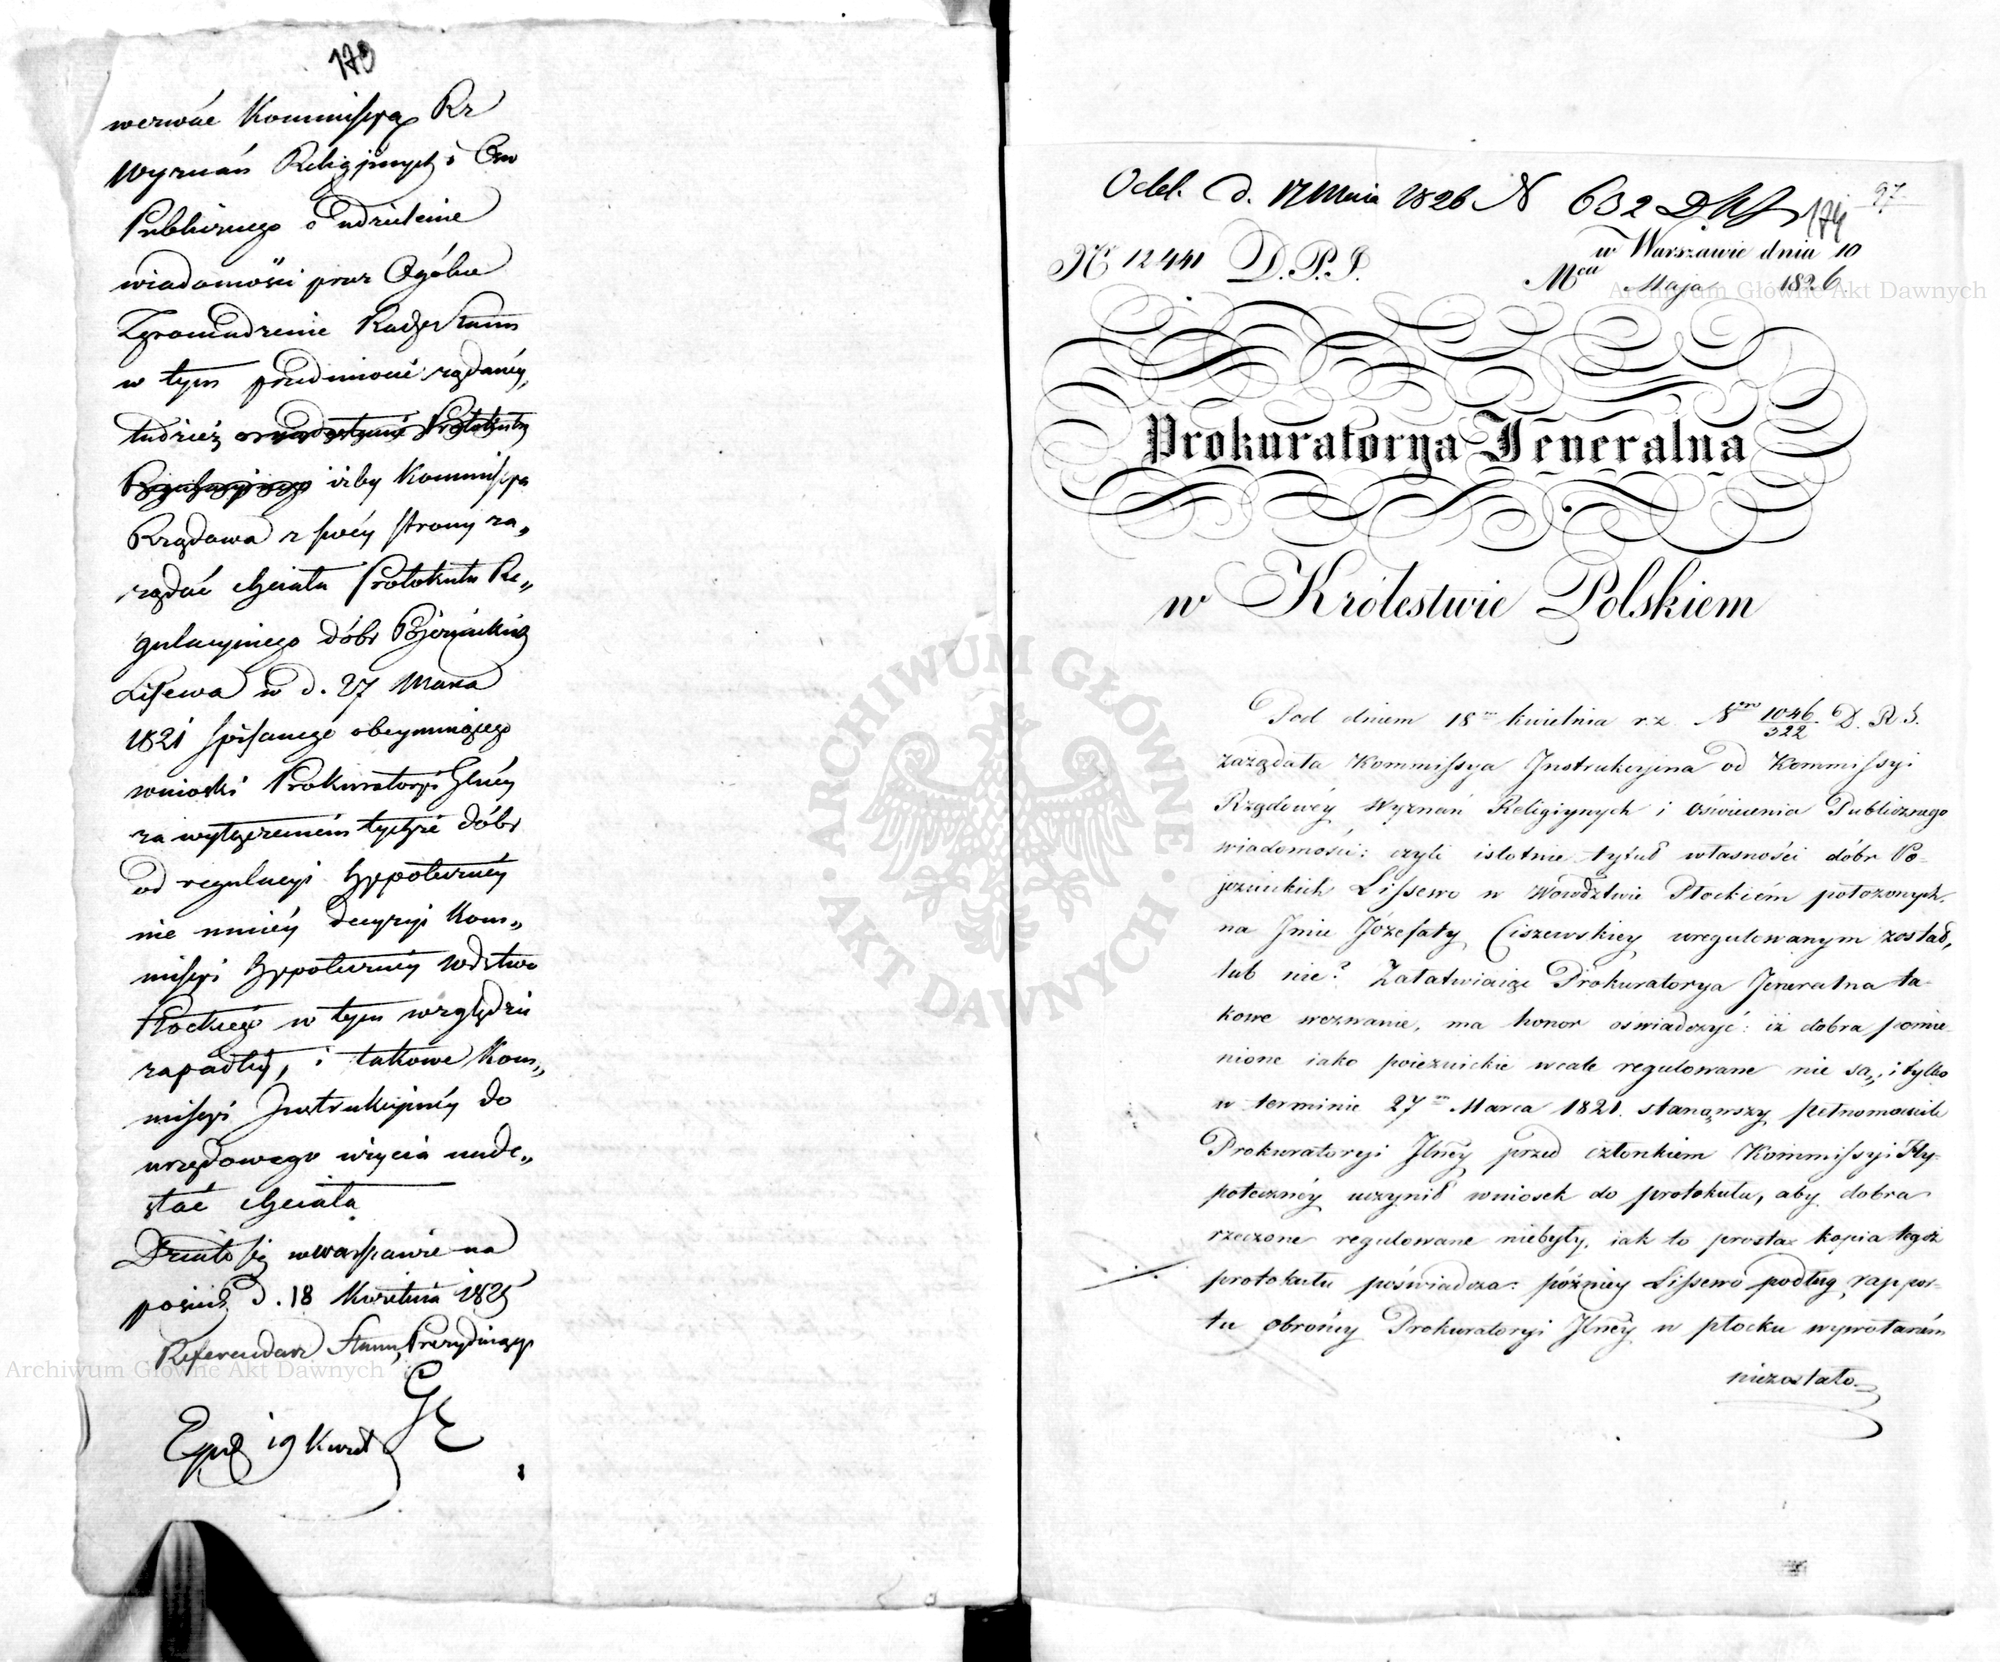 173
wezwać Kommissyą Rz
Wyznań Religijnych i Ośw
Publicznego o udzielenie
wiadomości przez Ogólne
Zgromadzenie Rady Stanu
w tym przedmiocie żądanéy,
tudzież o nadesłanie Protokułu
Regulacyjnego iżby Kommissya
Rządowa z swéy strony za„
rządzić chciała Protokułu Re„
gulacyinego dóbr Pojezuickich
Lissewa w d. 27 Marca
1821 spisanego obeymuiącego
wnioski Prokuratoryi Jlnéy
za wyłączeniem tychże dóbr
od regulacyi hypotecznéy
nie mniéy decyzyi Kom„
missyi Hypotecznéy Wdztwa
Płockiego w tym względzie
zapadłéy, i takowe Kom„
missyi Instrukcyinéy do
urzędowego użycia nade„
słać chciała
Działo się w Warszawie na
posiedz. d. 18 Kwietnia 1826
Referendarz Stanu, Prezyduiący
Exp. 19 Kwiet
Odeb. d. 17 Maia 1826 N 632 D.K.J.
174
97.
N 12441 D.P.J.
w Warszawie dnia 10
Mca Maja 1826
Prokuratorya Jeneralna
w Królestwie Polskiem
Pod dniem 18m kwietnia r.z. Nro 1046/322 D.R.S.
zażądała Kommissya Instrukcyina od Kommissyi
Rządowéy Wyznań Religiynych i Oświecenia Publicznego
wiadomości: czyli istotnie tytuł własności dóbr Po-
jezuickich Lissewo w Wowdztwie Płockiém położonych,
na Jmie Józefaty Ciszewskiey uregulowanym został,
lub nie? Załatwiaiąc Prokuratorya Jeneralna ta-
kowe wezwanie, ma honor oświadczyć: iż dobra pomie
nione iako poiezuickie wcale regulowane nie są, i tylko
w terminie 27m Marca 1821. stanąwszy pełnomocnik
Prokuratoryi Jlnéy przed członkiem Kommissyi Hy-
potecznéy uczynił wniosek do protokułu, aby dobra
rzeczone regulowane niebyły, iak to prosta kopia tegoż
protokułu poświadcza: późniey Lissewo podług rappor-
tu obrońcy Prokuratoryi Jlnéy w płocku wywołaném
niezostało.
ARCHIWUM GŁÓWNE · AKT DAWNYCH ·
Archiwum Główne Akt Dawnych
Archiwum Główne Akt Dawnych